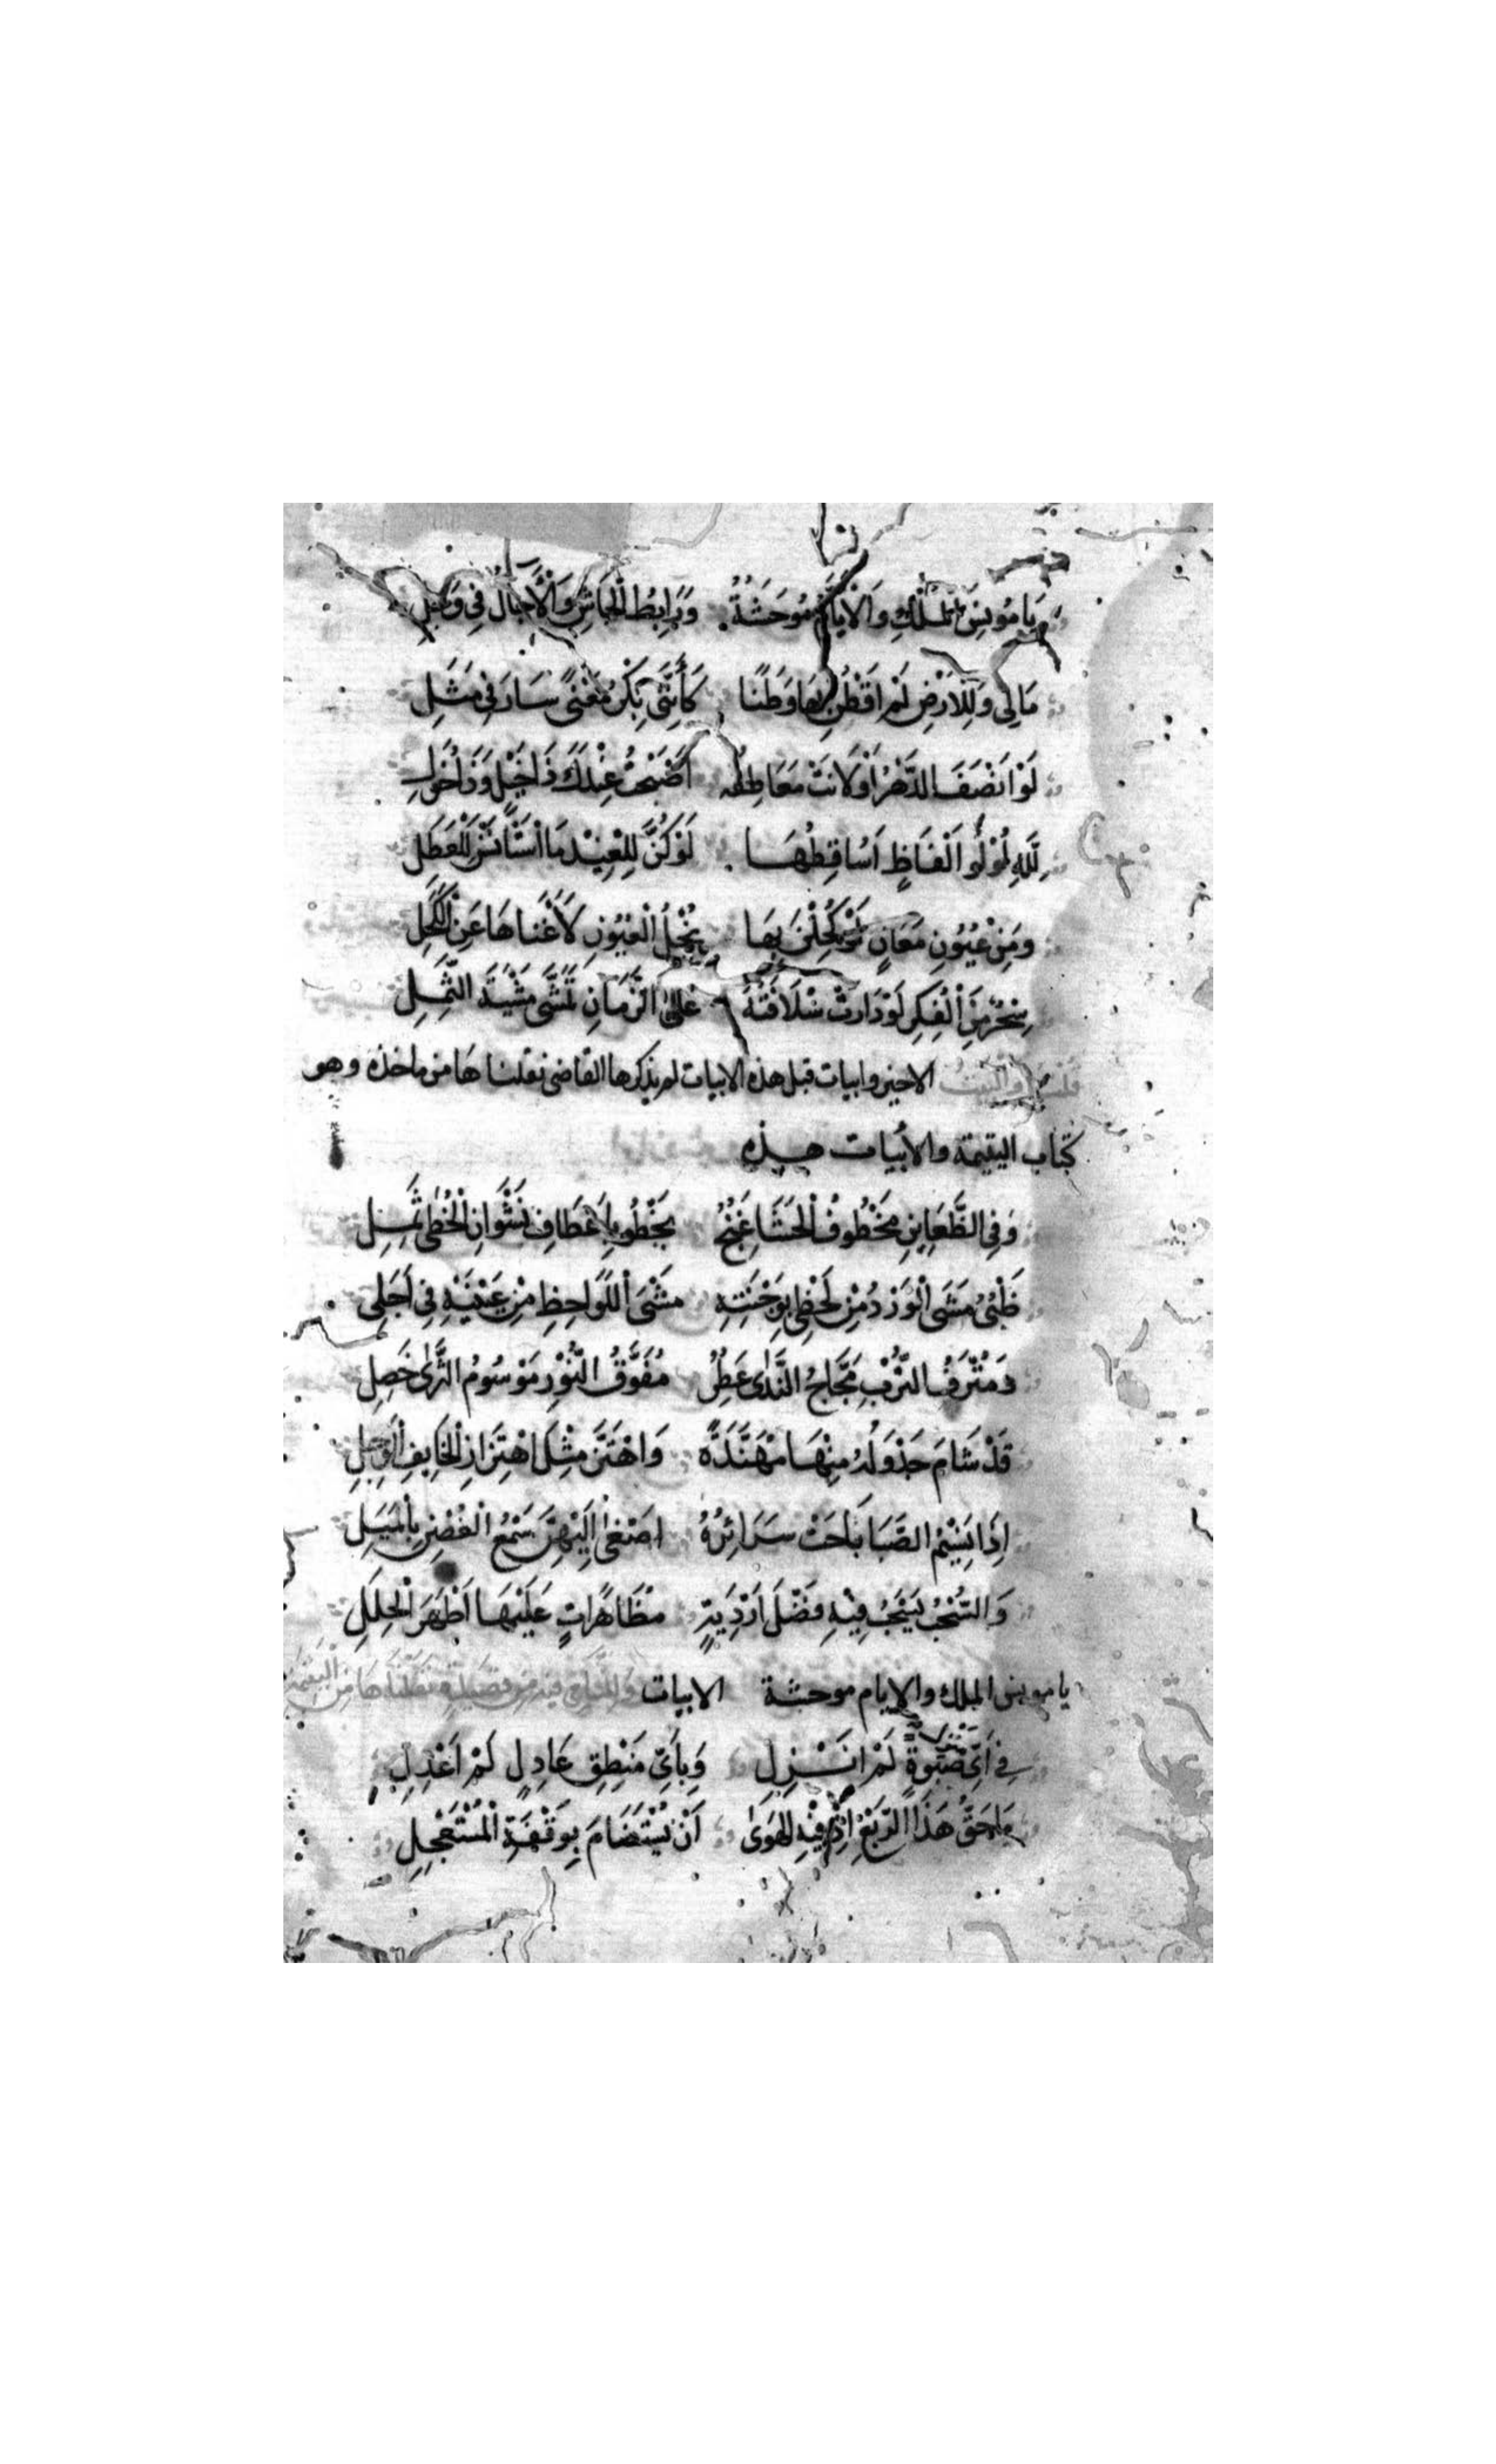 يَا مُونِسَ الْمُلْكِ وَالْأَيَّامُ مُوحَشَةٌ وَرَابِطَ الْجَاشِ وَالْآجَالُ فِي وَجَلِ
مَالِي وَلِلْارْضِ لَمْ اَقْطُنْ بِهَا وَطَنًا كَأَنَّنِى بِكْرُ مَعْنًى سَارَ فِى مَثَلِ
لَوْ اَنْصَفَ الدَّهْرُ اَوْ لَانَتْ مَعَاطِفُه اَصْبَحْتُ عِنْدَكَ ذَا خَيْلٍ وَذَا خَوَلِ
لِلَّهِ لُؤْلُؤُ اَلْفَاظٍ اُسَاقِطُهَا لَوْ كُنَّ لِلْغِيْدِ مَا اسْتَأنَسْنَ بِالْعَطَلِ
وَمِنْ عُيُونِ مَعَانٍ لَوْ كُحِلْنَ بِهَا نُجْلُ الْعُيُونِ لَأَغْنَاهَا عَنِ الْكَحَلِ
سِحْرٌ مِنَ الْفِكْرِ لَوْ دَارَتْ سُلَافَتُهُ عَلَى الزَّمَانِ تَمَشَّى مَشْيَةَ الثَّمِلِ
الاخير وابيات قبل هذه الابيات لم يذكرها القاضى نقلناها من ماخذه وهو
كتاب اليتيمة والأبيات هذه
وَفِى الظَّعَايِنِ مَخْطُوفُ الْحَشَا غَنِجٌ يَخْطُو بِاَعْطَافِ نَشْوَانِ الْخُطَى ثَمِلِ
ظَبْىٌ مَشَى الْوَرْدُ مِنْ لَحْظِى بِوَجْنَتِهِ مَشْىَ اللَّوَاحِظِ مِنْ عَيْنَيْهِ فِى اَجَلِى
وَمُتْرَفِ التُّرْبِ مَجَّاجُ النَّدَى عَطِرٌ مُفَوَّقُ النَّوْرِ مَوْسُومُ الثَّرَى خَضِلِ
قَدْ شَامَ جَدْوَلُهُ مِنْهَا مُهَنَّدَةً وَاهْتَزَّ مِثْلَ اهْتِزَازِ الْخَايِفِ الْوَجِلِ
اِذَا نَسِيْمُ الصَّبَا بَاحَتْ سَرَائِرُهُ اصْغَى اِلَيْهِنَّ سَمْعُ الْغُصْنِ بِالْمَيَلِ
وَالسُّحْبُ يَسْحَبُ فِيْهِ فَضْلَ اَرْدِيَةٍ مُظَاهَرَاتٍ عَلَيْهَا اَظْهَرَ الْحِلَلِ
يا مونس الملك والايام موحشة الابيات من قصيدة نقلناها من اليتيمة
فِى اَىِّ صَبْوَةٍ لَمْ انَــزِلِ وَبِاَىِّ مَنْطِقِ عَاذِلٍ لَمْ اَعْذِلِ
مَا حَقُّ هَذَا الرَّبْعِ اِذْ فِيْهِ الْهَوَى اَنْ يُسْتَضَامَ بِوَقْفَةِ الْمُسْتَعْجِلِ